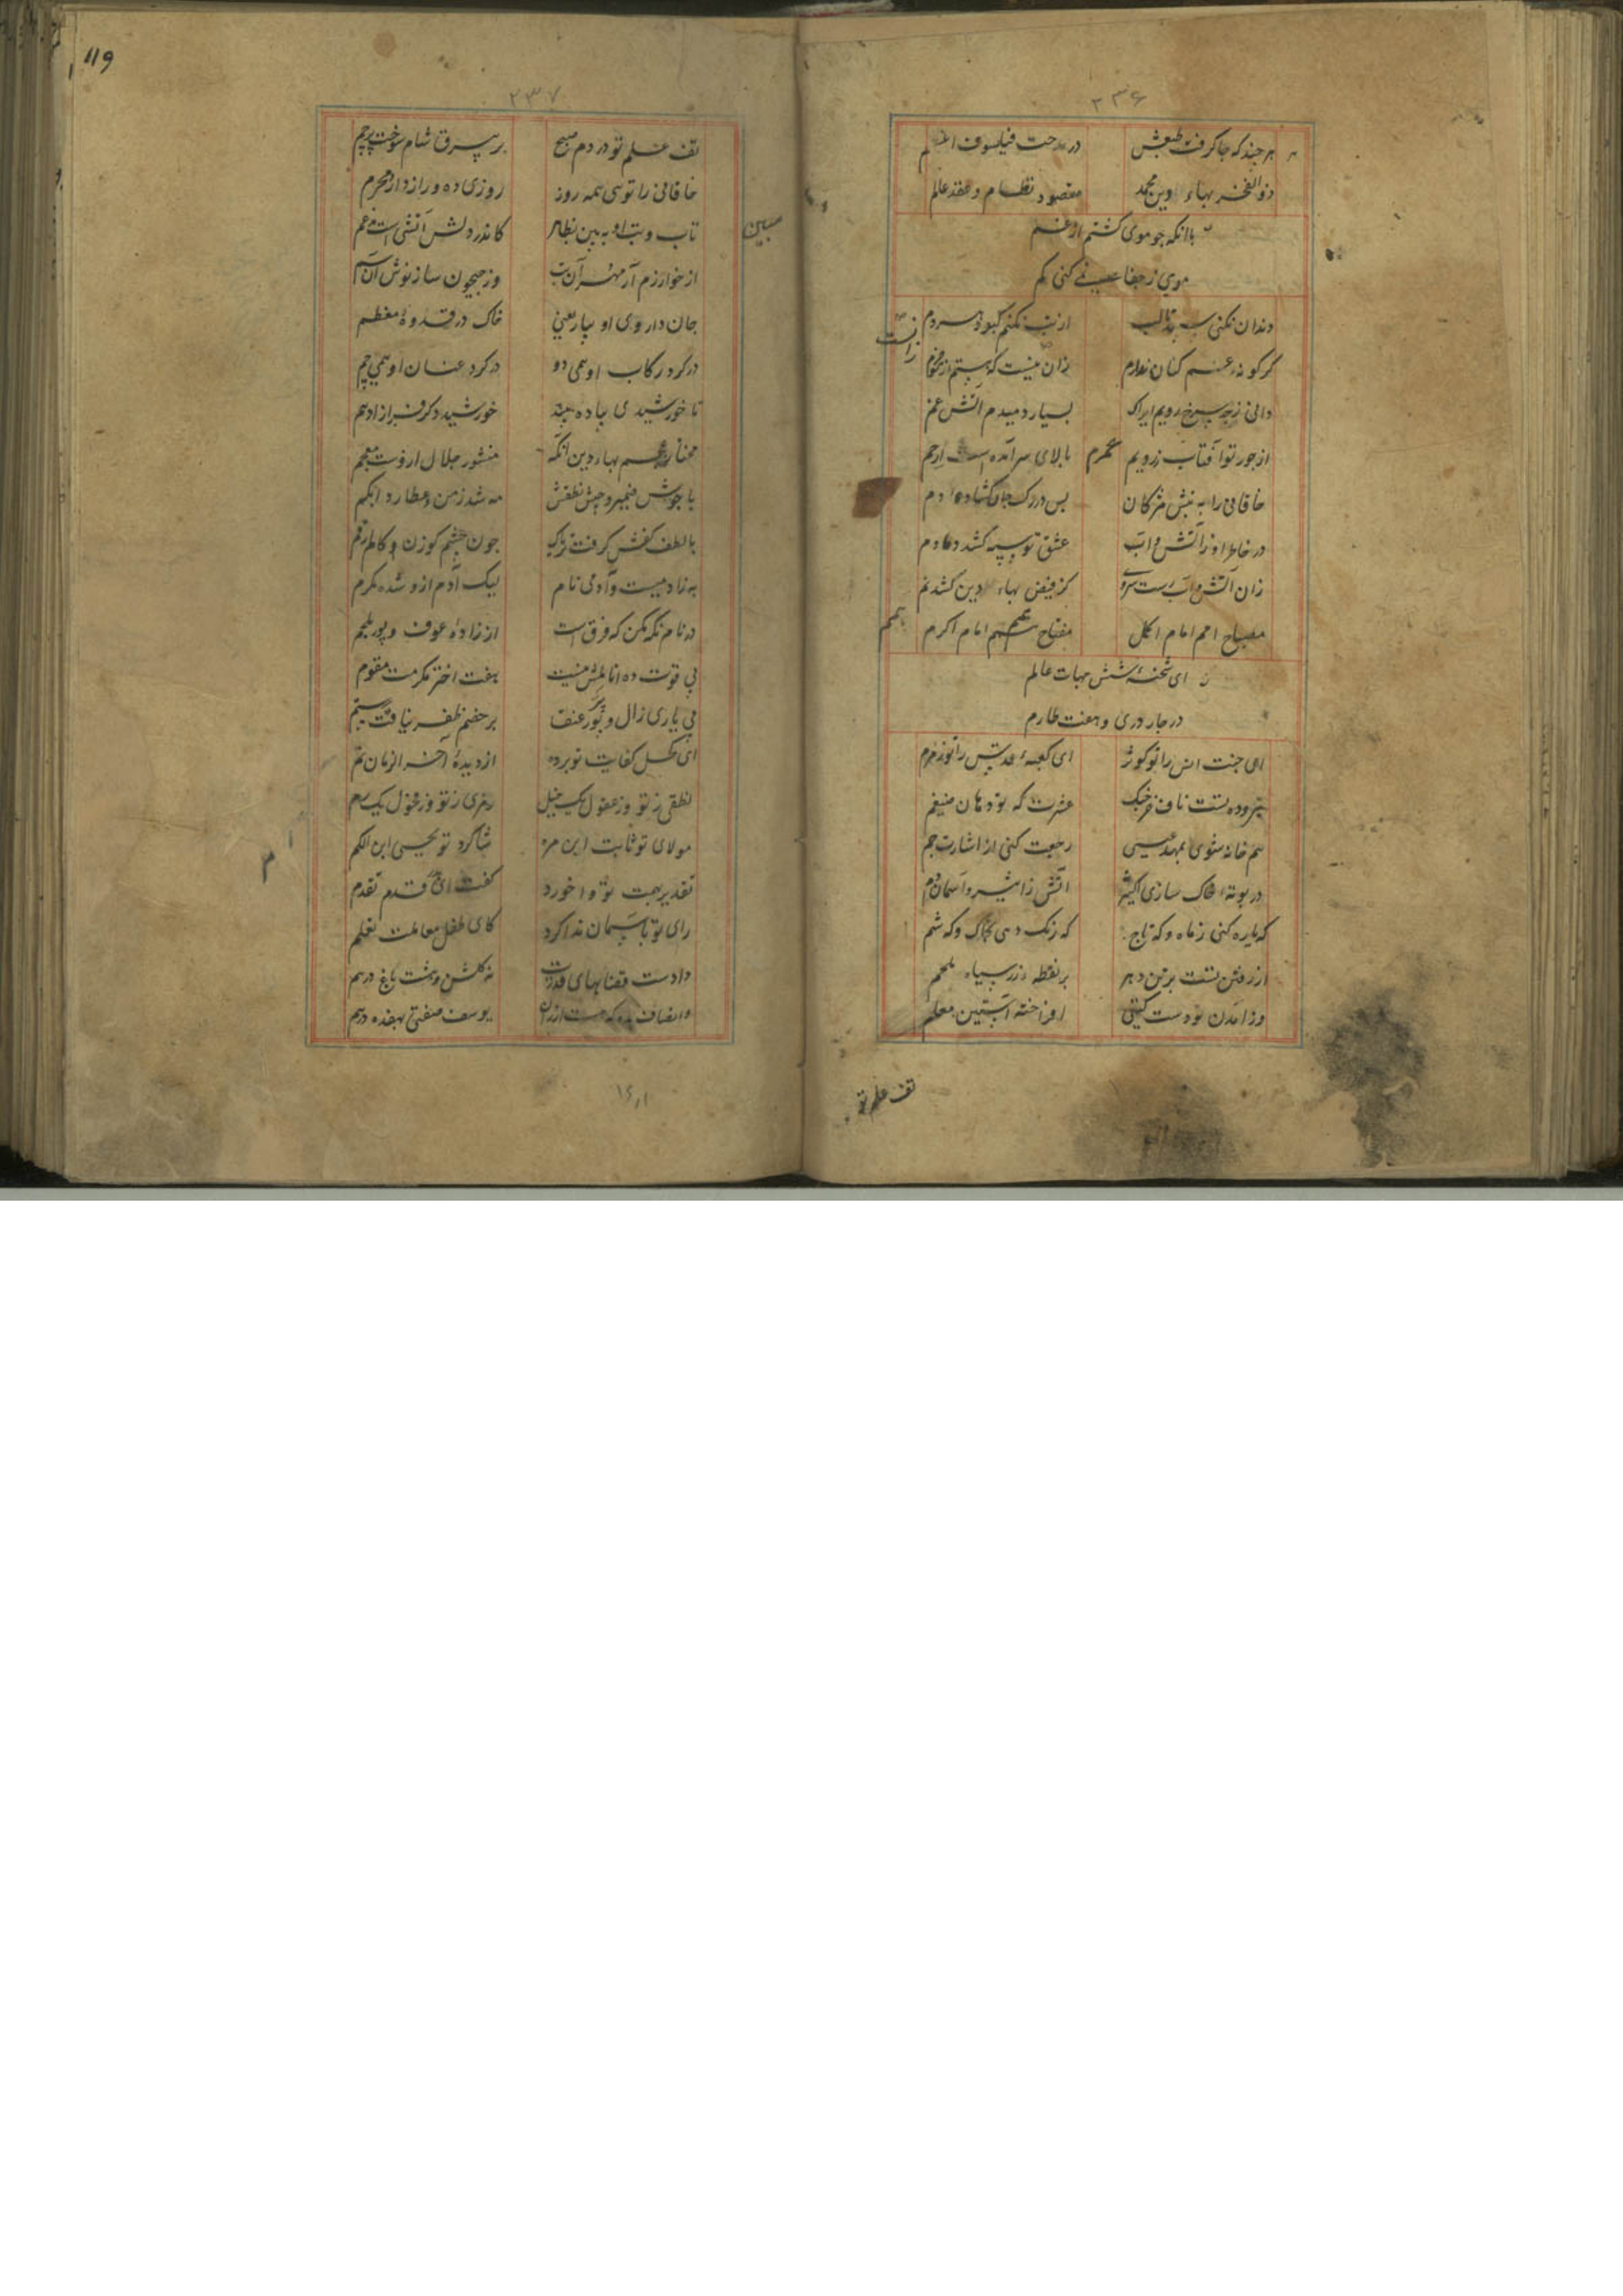 ۲۳۶
هر چند که جا گرفت طبعش در مدحت فیلسوف اعلم
ذوالفخر بهاء دین محمد مقصود نظام و عقد عالم
با انکه چو موی کشتم از غم
مویی ز جفا نمی کنی کم
دندان نکنی سپید تا لب از تب نکنم کبود هر دم
کر کونه غم کنان ندارم زان نیست که نیستم
دانی ز چه سرخ رویم ایراک بسیار دمیدم آتش غم
از جور تو آفتاب زرویم بالای سر آمده است ارحم
محرم
خاقانی را به نیش مژکان بس در رک جان کشاده دم
در خاطر او ز آتش و آب عشق تو سپه کشد دمادم
زان آتش و آب رست سروی کز فیض بهاء دین کشد نم
مصباح امم امام اکمل مفتاح همم امام اکرم
ای شحنه شش جهات عالم
در چار دری و هفت طارم
ای جنت انس را تو کوثر ای کعبه قدس را تو زمزم
بیروده بتست ناف خرچنک عشرت که تو دهان ضیغم
هم خانه شوی بمهد عیسی رجعت کنی از اشارت جم
در بوته خاک سازی اکسیر آتش ز اثیر و آسمان دم
که یاره کنی ز ماه و که تاج که رنک دهی بخاک و که شم
از رفتن تست بر تن دهر بر نقطه زر سیاه ملحم
وز آمدن تو دست کیتی افراخته آستین معلم
تف علم تو
119
۲۳۷
تف علم تو در دم صبح بر بیرق شام سوخت پرچم
خاقانی را تویی همه روز روزی ده و رازدار و محرم
تاب و تب او ببین بظاهر کاندر دلش آتشی است مدغم
مبین
از خوارزم آر مهر آن تب وز جیحون ساز نوش آن سم
جان داروی او بیار یعنی خاک در قدوه معظم
در کرد رکاب او همی دو در کرد عنان او همی چم
تا خورشیدی پیاده بیند خورشید دکر فراز ادهم
مختار عجم بهاء دین انکه منشور جلال اروست معجم
با جوشش ضمیر و جیش نطقش مه شد زمن و عطارد ابکم
با لطف کفش کرفت تریاک چون چشم کوزن و کام ارقم
به زاد میست و آدمی نام لیک آدم ازو شده مکرم
در نام نکه مکن که فرق است از زاده عوف و پور ملجم
بی قوت ده انامل نیست هفت اختر مکرمت مقوم
بی یاری زال و پر عنقا بر خصم ظفر نیافت رستم
ای کحل کفایت تو برده از دیده آخر الزمان نم
نطقی ز تو وز عقول یک خیل رمزی ز تو وز فحول یک رم
مولای تو ثابت ابن مره شاکرد تو یحیی ابن اکثم
تقدیر بهت تو وا خورد کفت ای قدم تقدم
رای تو بآسمان ندا کرد کای طفل معاملت تعلم
دادست قضا بهای قدرت نه کلشن و هشت باغ درهم
وانصاف بده که هست ارزان یوسف صفتی بهفده درهم